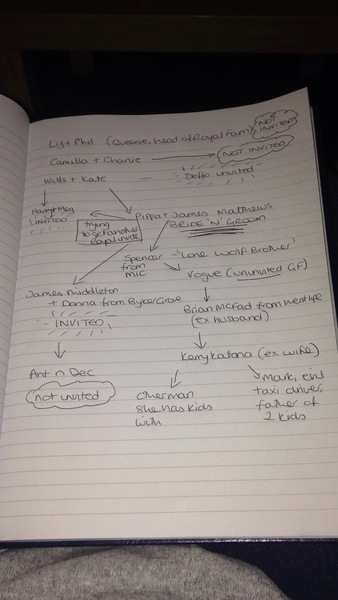 Liz + Phil (Queenie, head of Royal Fam) NOT INVITED
Camilla + Charlie NOT INVITED
Wills + Kate - Deffo invited
Harry + Meg INVITED
trying to get another Royal invite
Pippa + James Matthews
BRIDE 'N' GROOM
Spencer from MIC - 'Lone Wolf Brother'
Vogue (uninvited GF)
James Middleton
+ Donna from Byker Grove
- INVITED
Brian McFad from Westlife
(ex husband)
Ant n Dec
not invited
Kerry Katona (ex wife)
Other man
she has kids
with
Mark, evil
taxi driver,
father of
2 kids